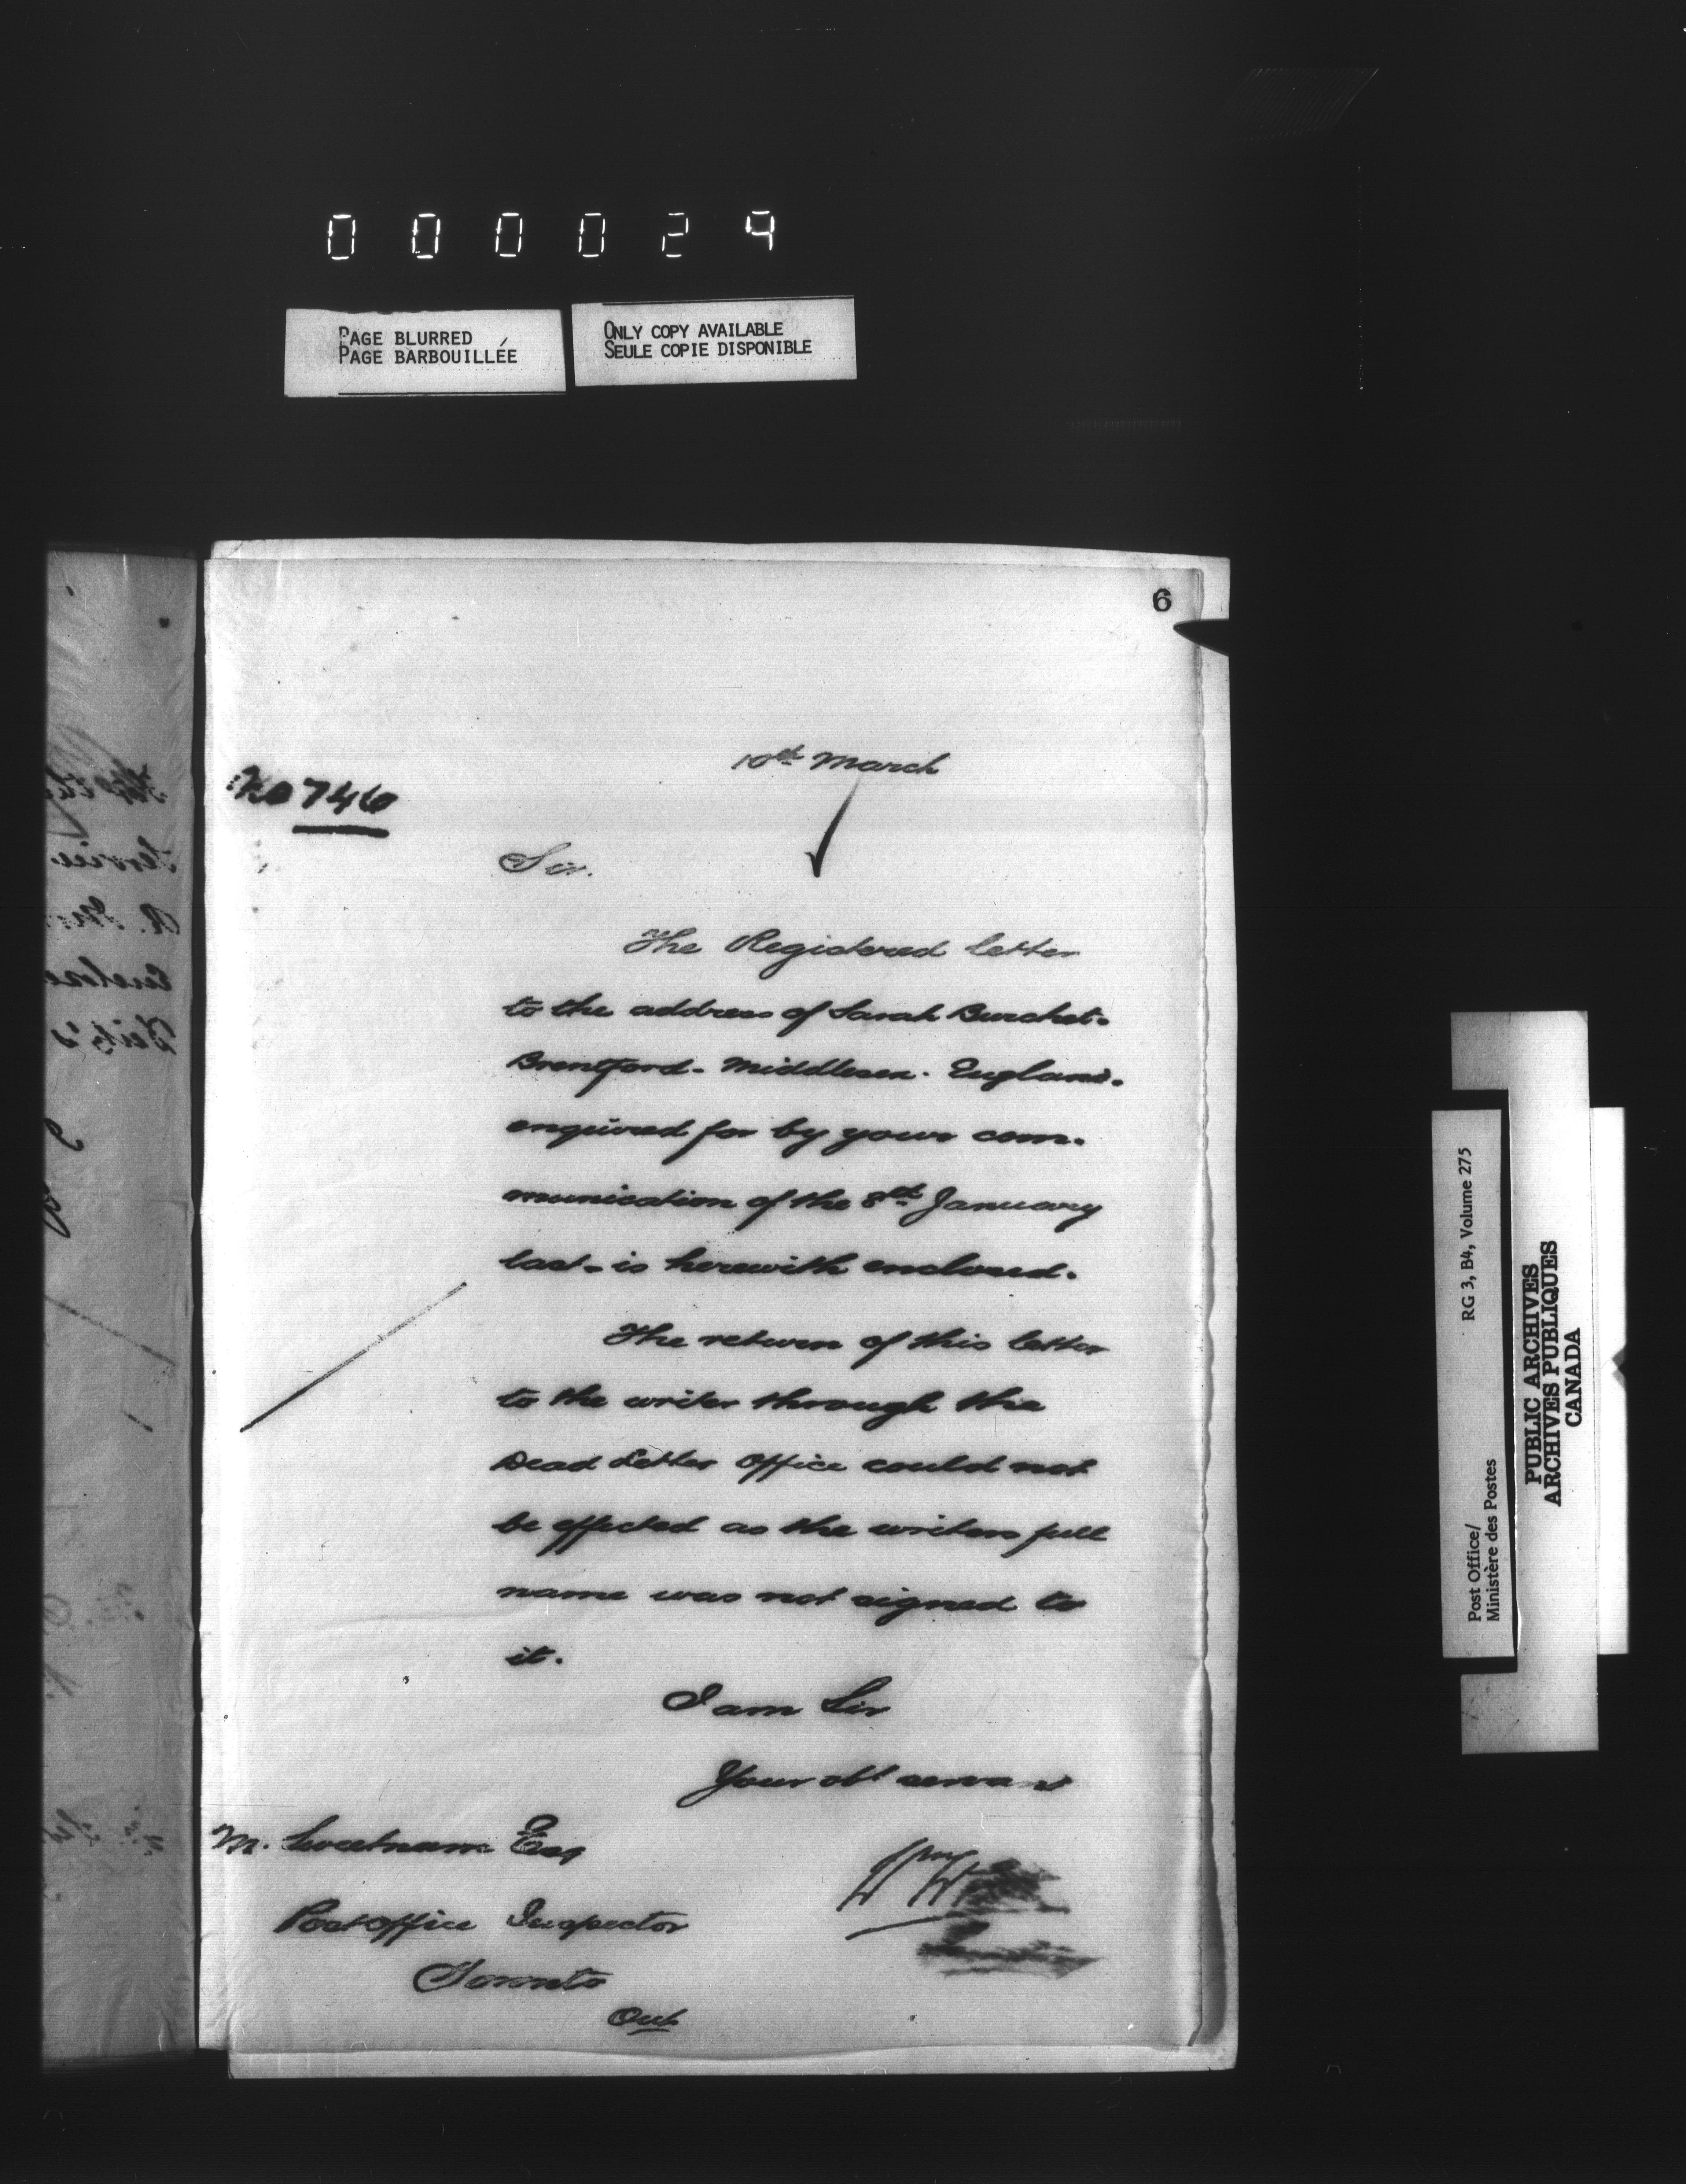 000029
PAGE BLURRED
PAGE BARBOUILLÉE
ONLY COPY AVAILABLE
SEULE COPIE DISPONIBLE
6
10th March
No 746
Sir.
The Registered letter
to the address of Sarah Burchet.
Brentford - Middlesex. England.
enquired for by your com-
munication of the 8th January
last - is herewith enclosed.
The return of this letter
to the writer through the
Dead Letter Office could not
be effected as the writers full
name was not signed to
it.
I am Sir
Your obt servant
M. Sweetnam Esq
Post Office Inspector
Toronto
Ont
Post Office/
Ministère des Postes
RG 3, B4, Volume 275
PUBLIC ARCHIVES
ARCHIVES PUBLIQUES
CANADA